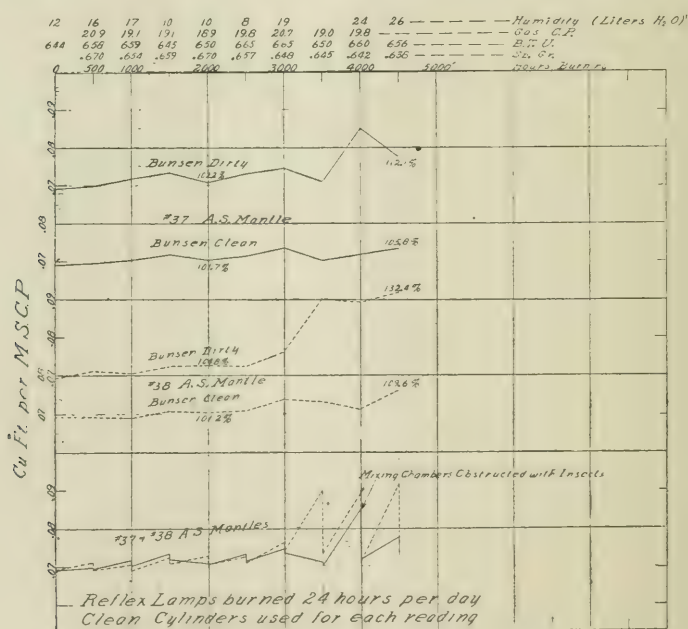 12 16 17 10 10 8 19 24 26 Humidity (Liters H2O)
20.9 19.1 19.1 18.9 19.8 20.7 19.0 19.8 Gas C.P.
644 658 659 645 650 665 665 650 660 656 B.T.U.
.670 .654 .659 .670 .657 .648 .645 .642 .636 Sp. Gr.
0 500 1000 2000 3000 4000 5000 Hours Burner
Bunsen Dirty
112.1%
.07
#37 A.S. Mantle
.08
Bunsen Clean
105.8%
.07
101.7%
132.4%
.09
.08
Bunsen Dirty
#38 A.S. Mantle
109.6%
Bunsen Clean
.07
101.2%
Cu Ft. per M.S.C.P
Mixing Chambers Obstructed with Insects
.09
#37 + #38 A.S. Mantles
.08
.07
Reflex Lamps burned 24 hours per day
Clean Cylinders used for each reading